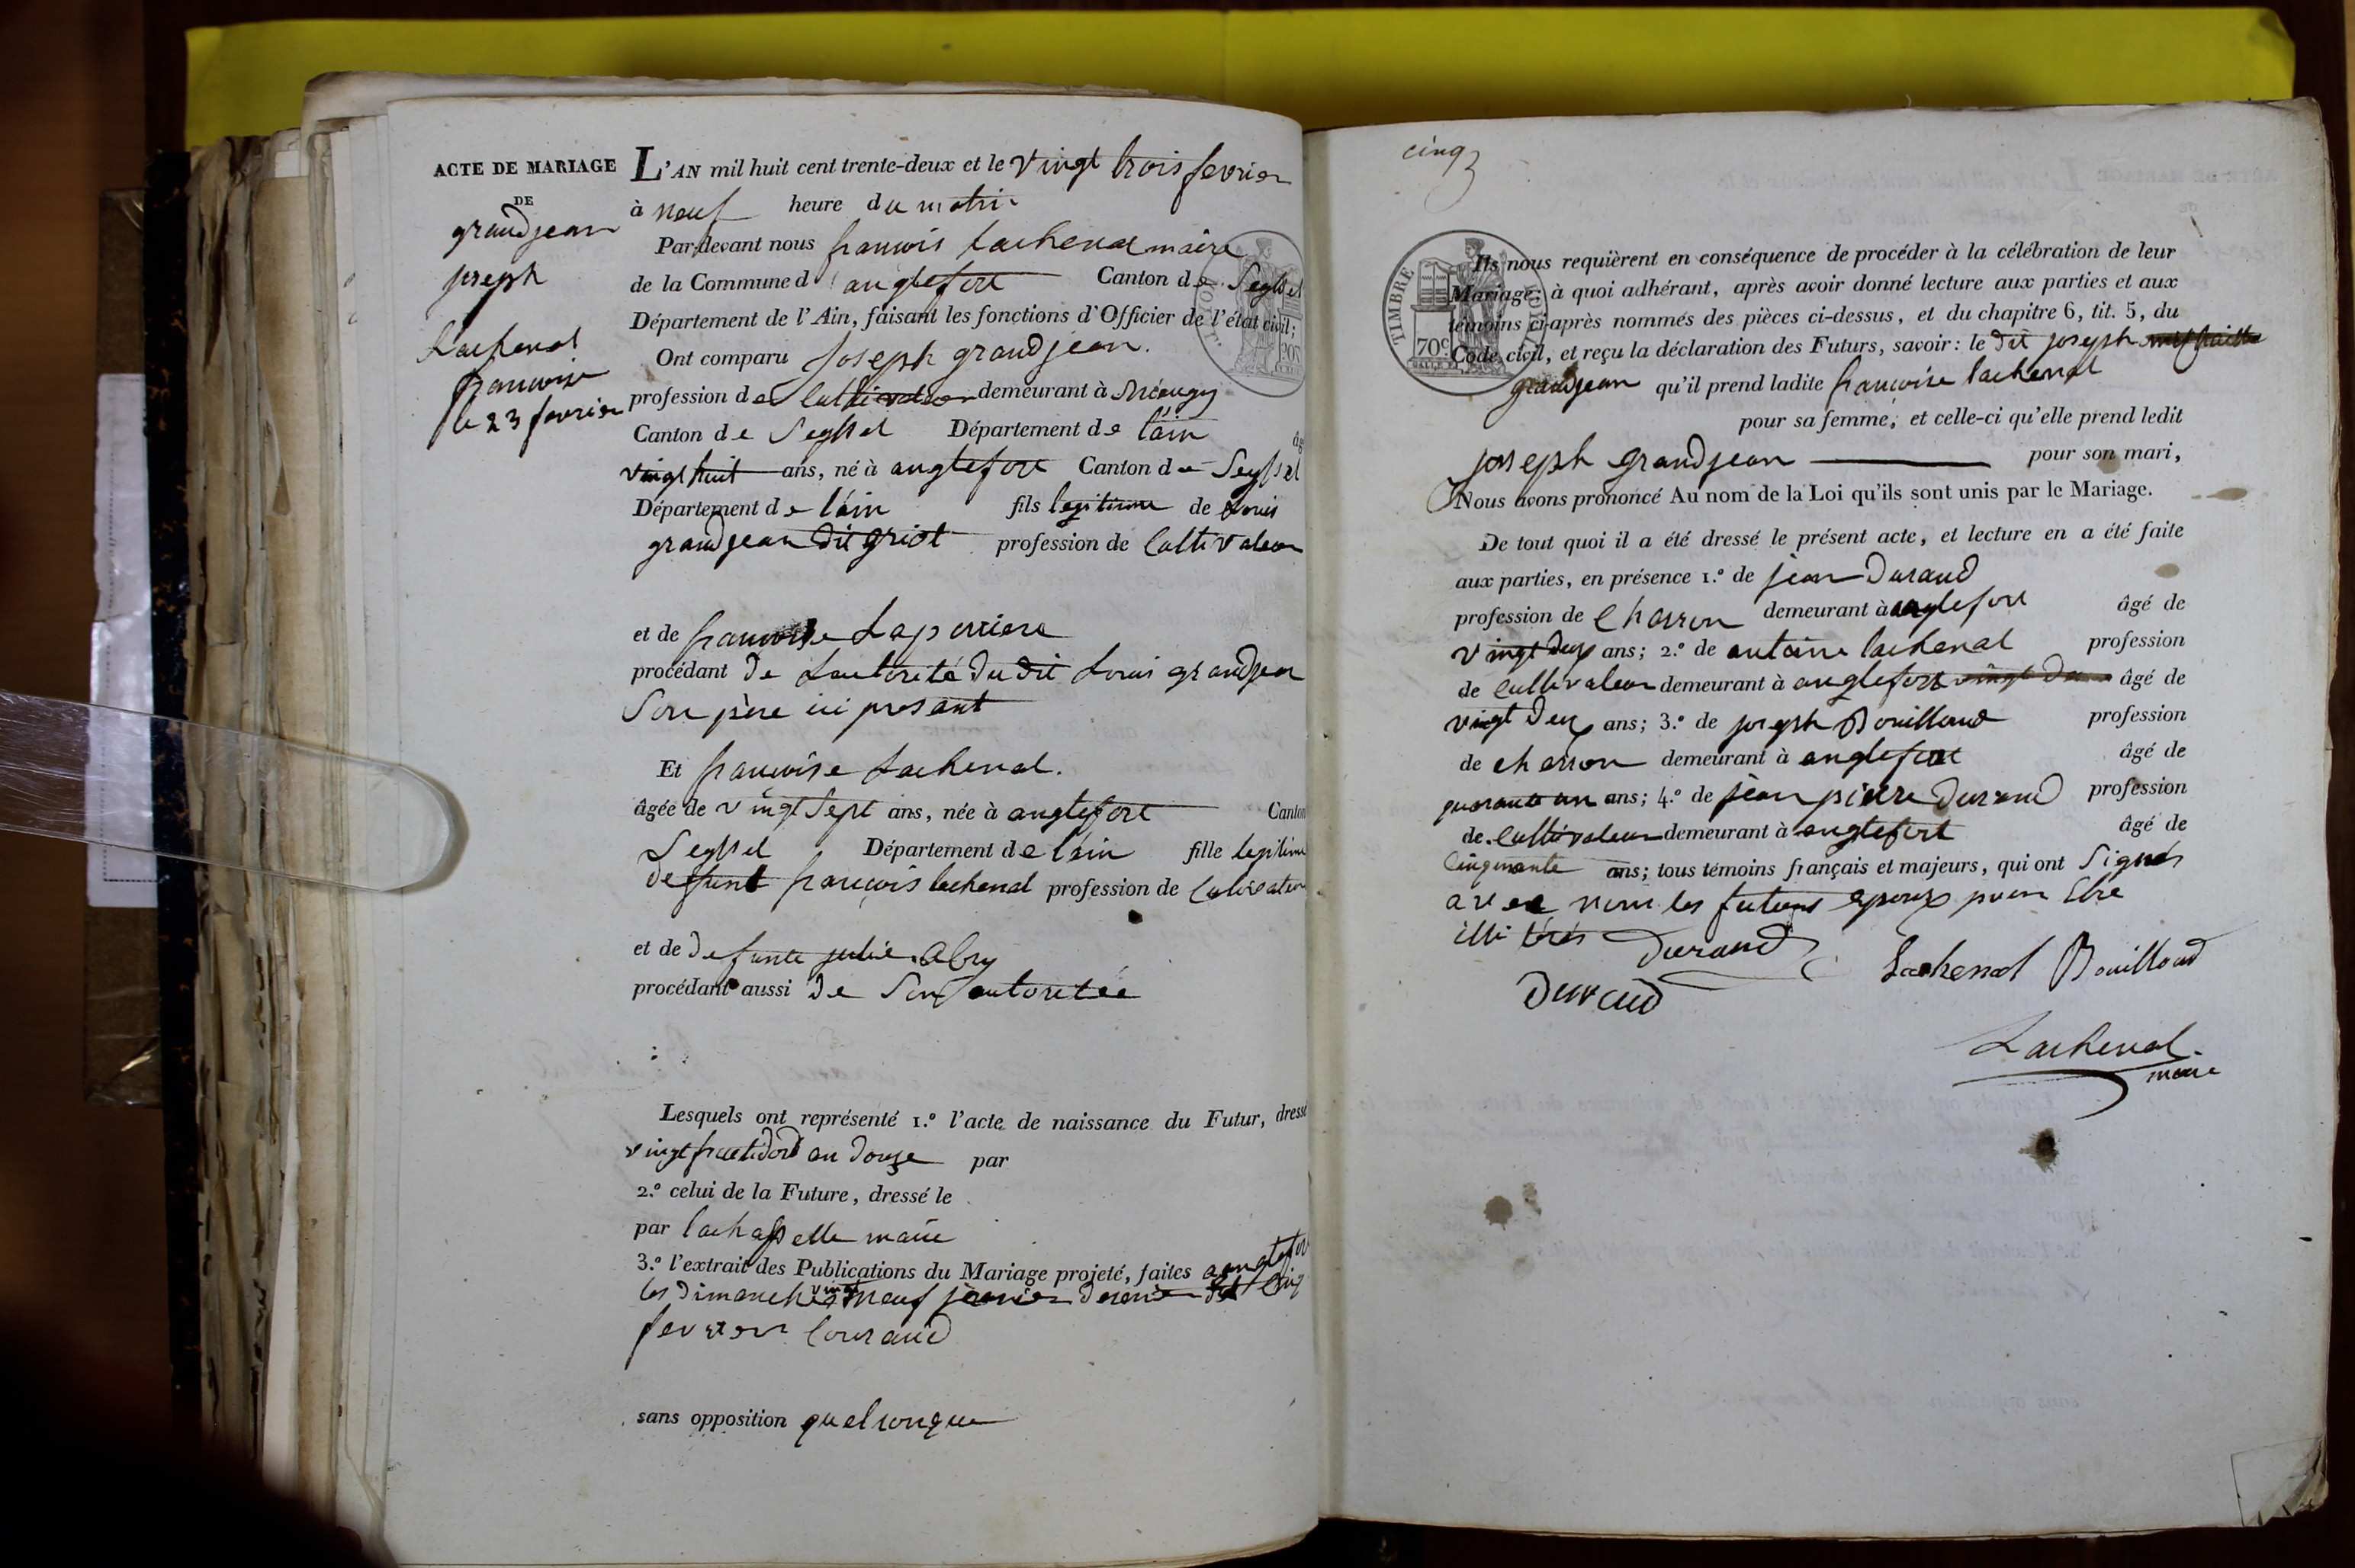 ACTE DE MARIAGE
DE
grandjean
joseph
Lachenal
francoise
le 23 fevrier
L'AN mil huit cent trente-deux et le vingt trois fevrier
à neuf heure du matin
Par-devant nous francois Lachenal maire
de la Commune d'anglefort Canton de Seyssel
Département de l'Ain, faisant les fonctions d'Officier de l'état civil;
Ont comparu Joseph grandjean.
profession de Cultivateur demeurant à
Canton de Seyssel Département de l'ain âg
vingt huit ans, né à anglefort Canton de Seyssel
Département de l'ain fils legitime de Louis
grandjean dit griot profession de Cultivateur
et de francoise Laperriere
procédant de Lautorité du dit Louis grandjean
Son père ici present
Et francoise Lachenal.
âgée de vingt Sept ans, née à anglefort Canton
Seyssel Département de l'ain fille legitime
defunt francois lachenal profession de Cultivateur
et de defunte julie Abry
procédant aussi de Son autoritée
Lesquels ont représenté 1.º l'acte de naissance du Futur, dressé
vingt fructidord an douze par
2.º celui de la Future, dressé le
par lachapelle maire
3.º l'extrait des Publications du Mariage projeté, faites a anglefort
les dimanches vingt neuf janvier dernier et Cinq
fevrier Courand
sans opposition quelconque
cinq
TIMBRE ROYAL
70c
Ils nous requièrent en conséquence de procéder à la célébration de leur
Mariage; à quoi adhérant, après avoir donné lecture aux parties et aux
témoins ci-après nommés des pièces ci-dessus, et du chapitre 6, tit. 5, du
Code civil, et reçu la déclaration des Futurs, savoir: le dit joseph
grandjean qu'il prend ladite francoise lachenal
pour sa femme, et celle-ci qu'elle prend ledit
joseph grandjean pour son mari,
Nous avons prononcé Au nom de la Loi qu'ils sont unis par le Mariage.
De tout quoi il a été dressé le présent acte, et lecture en a été faite
aux parties, en présence 1.º de jean Durand
profession de Charron demeurant à anglefort âgé de
vingt deux ans; 2.º de antoine lachenal profession
de Cultivateur demeurant à anglefort vingt deux âgé de
vingt deux ans; 3.º de joseph Bouilloud profession
de charron demeurant à anglefort âgé de
quarante un ans; 4.º de jean pierre Durand profession
de Cultivateur demeurant à anglefort âgé de
Cinquante ans; tous témoins français et majeurs, qui ont Signés
avec nous les futeurs epoux pour Etre
illiterés
Durand
Lachenal Bouilloud
Duraud
Lachenal
maire